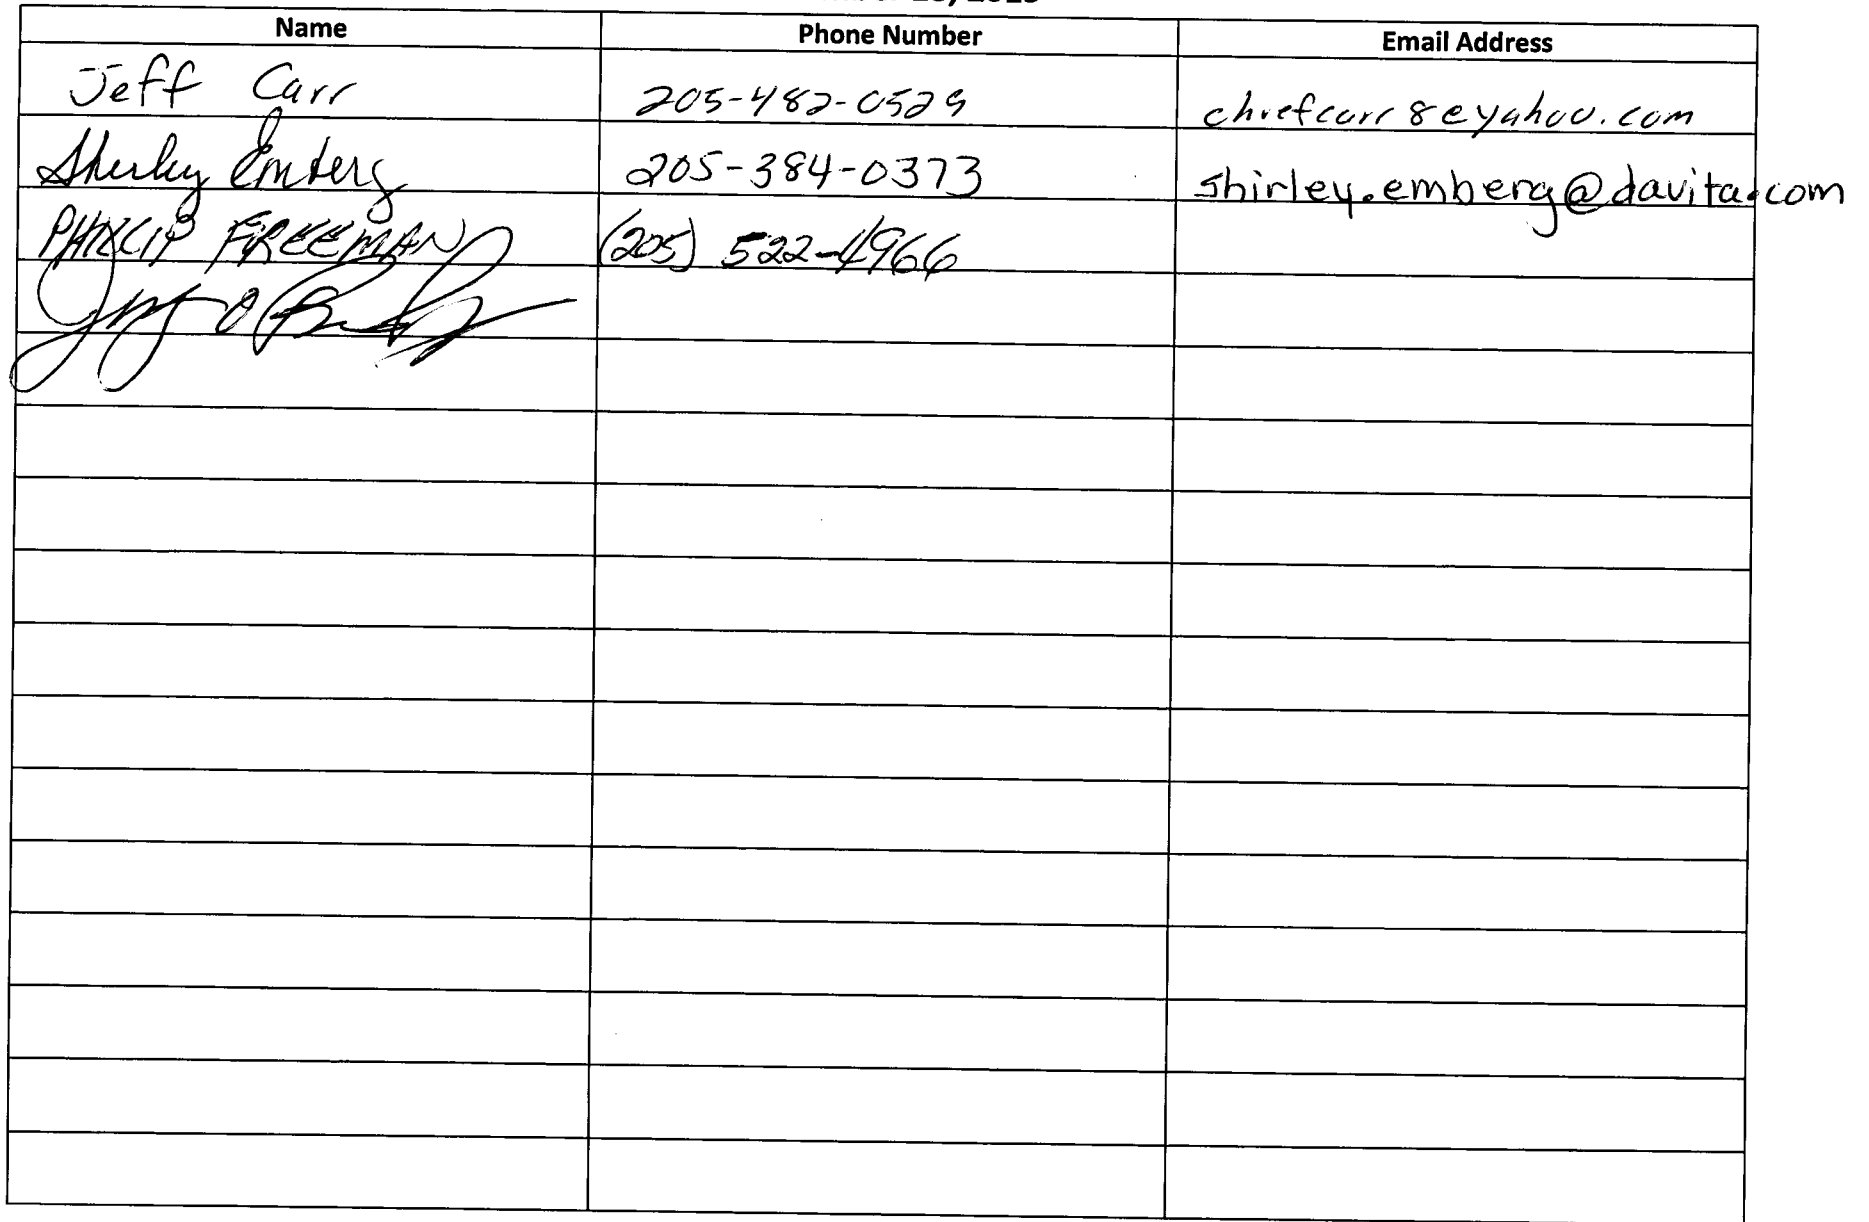 Name Phone Number Email Address
Jeff Carr 205-482-0529 chiefcarr8@yahoo.com
Shirley Emberg 205-384-0373 shirley.emberg@davita.com
PHILLIP FREEMAN (205) 522-4966